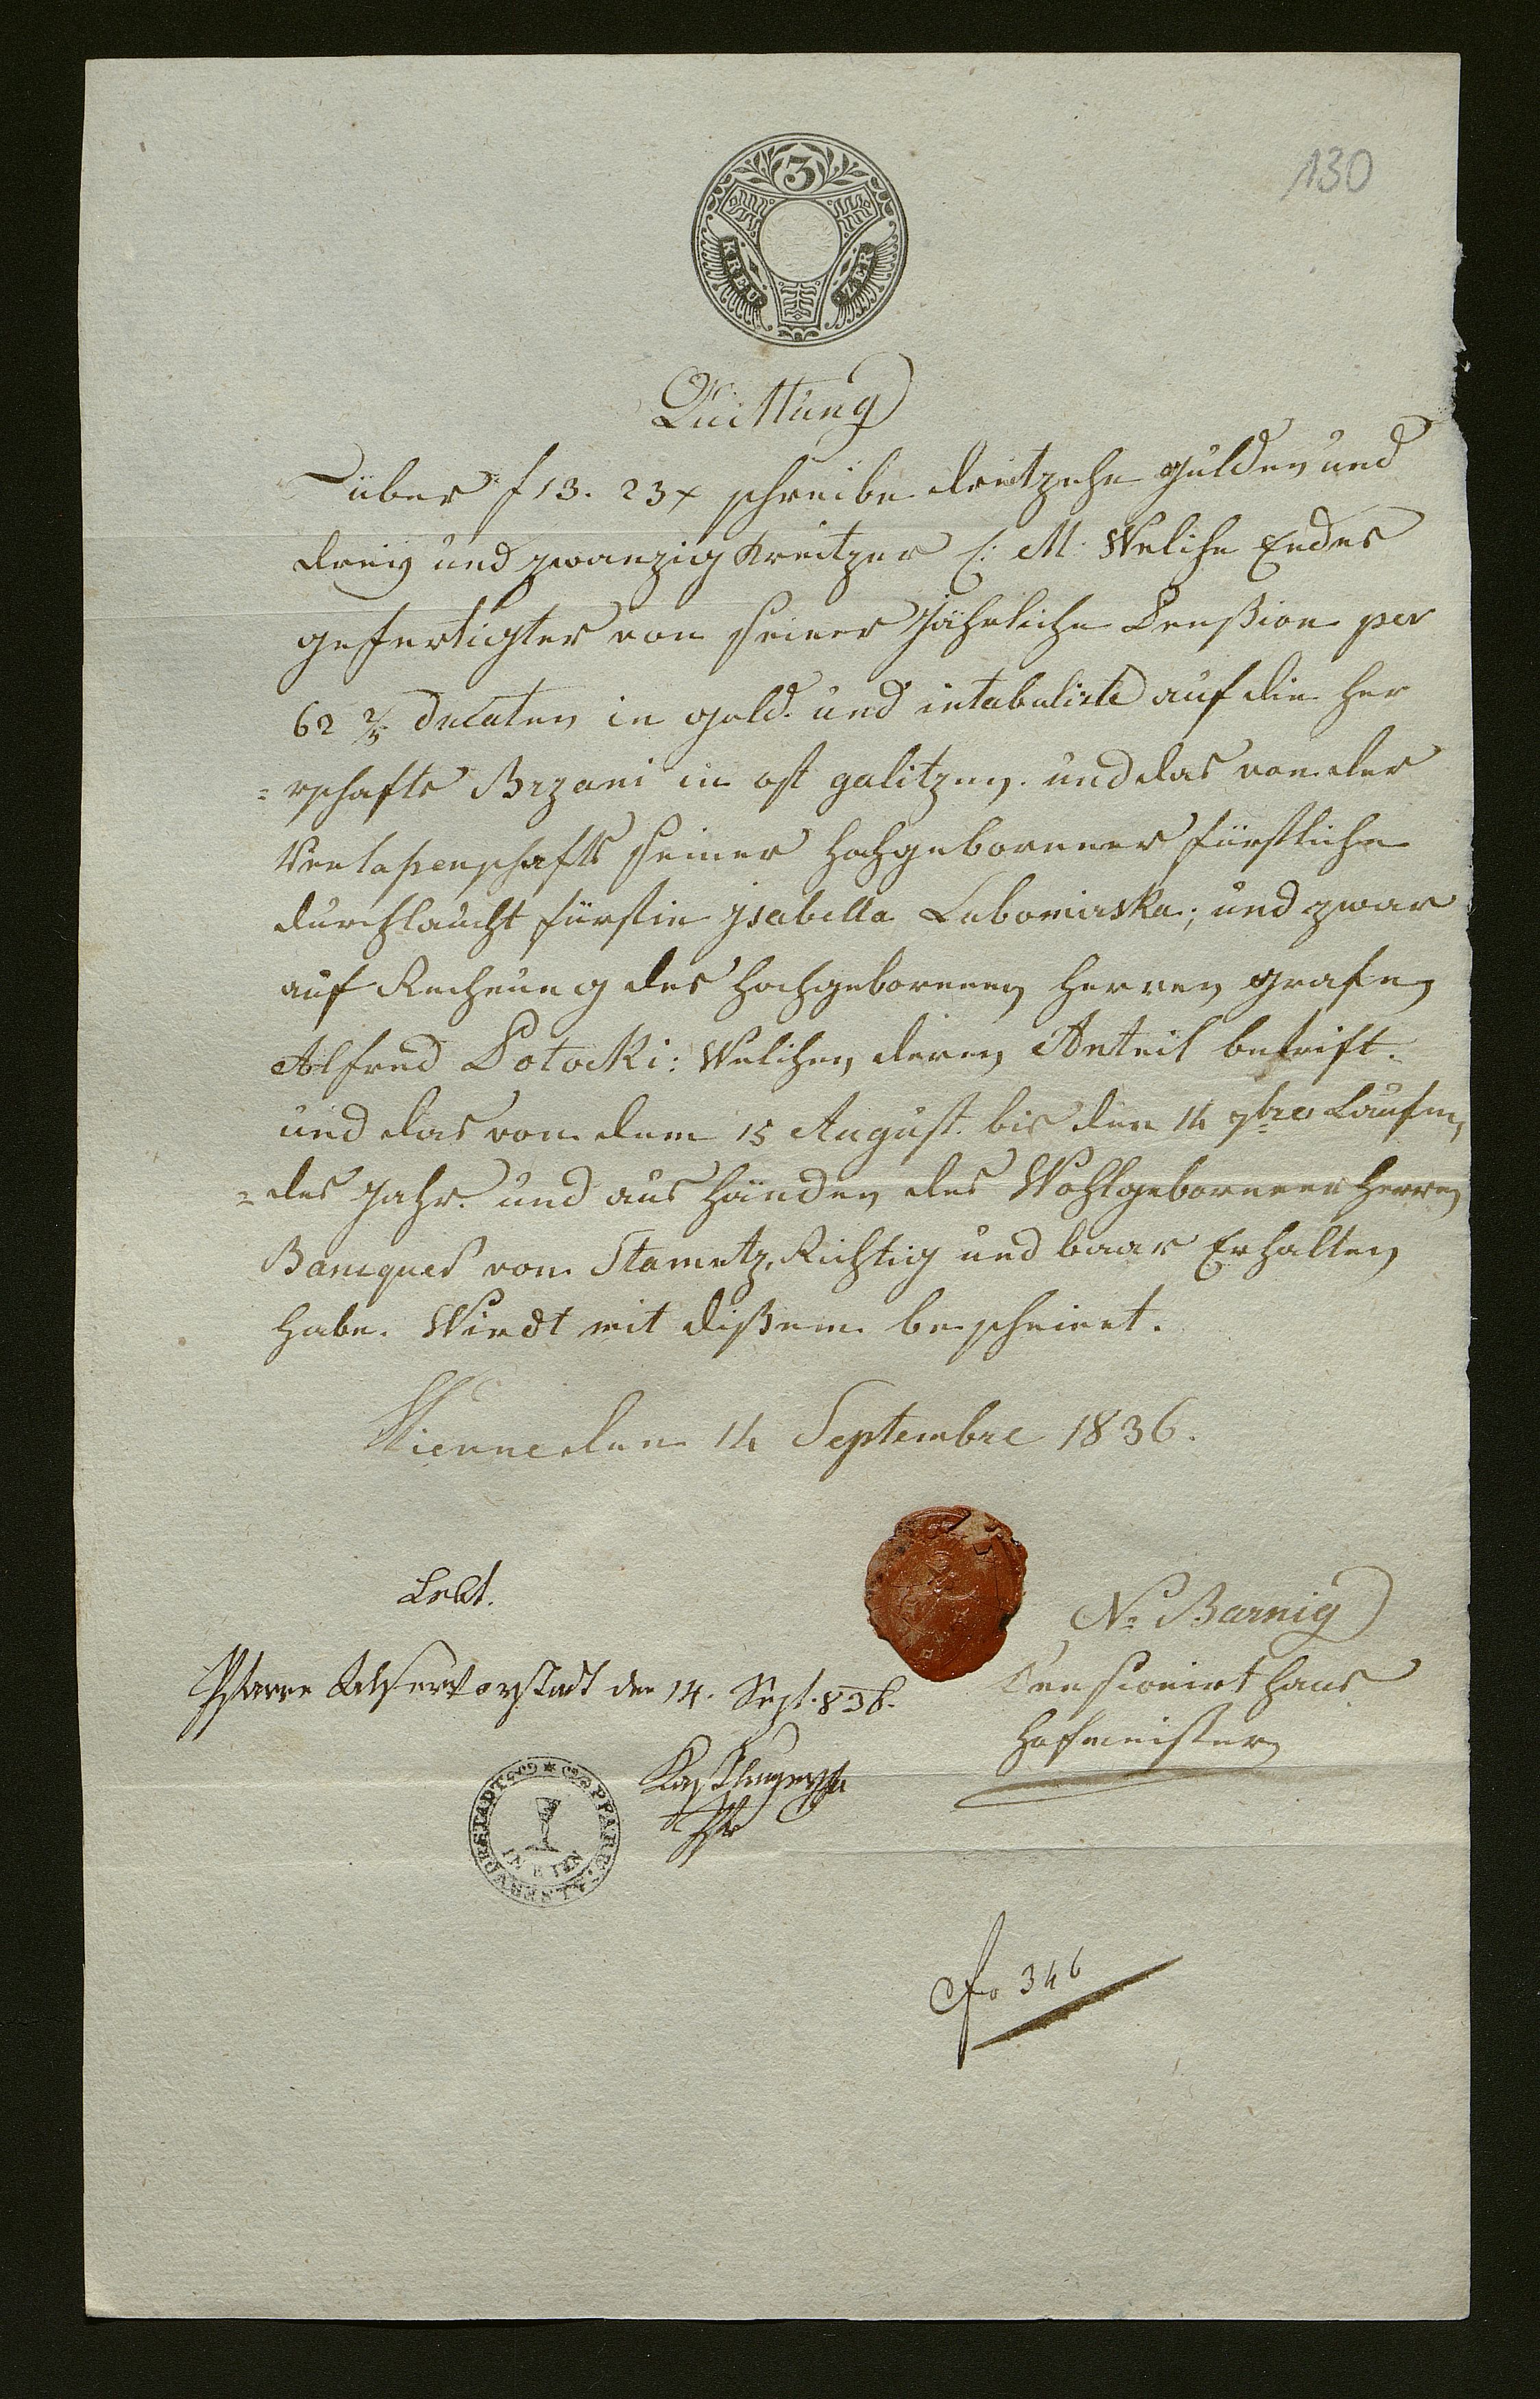 130
3
KREU ZER
Quittung
über f 13. 23 x schreibe dreitzehn gulden und
dreiy und zwanzig Kreitzer C: M: Welche Endes
gefertigter von seiner Jährliche Penßion per
62 2/5 ducaten in gold. und intabulirte auf die Her
=rschafts Brzani in ost galitzen. und das von der
Verlaßenschafts seiner Hochgeborener fürstliche
durchlaucht fürstin jsabella Lubomirska; und zwar
auf Rechnung des Hochgeborenen Herren grafen
Alfred Potocki: Welchen deren Anteil betrift.
und das von dem 15 August. bis den 14 7bre Laufen,
=des Jahr. und aus Händen des Wohlgeborener Herren
Banques von Stametz, Richtig und baar Erhalten
Habe. Wirdt mit dißem bescheint.
Vienne den 14 Septembre 1836.
Lebt.
N: Barnig
Pfarre Alservorstadt den 14. Sept. 836.
Pensionirt Haus
Hofmeister
PFARR ALSERVORSTADT
IN WIEN
Fo 346